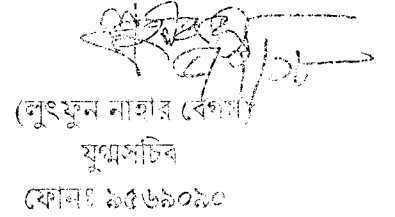 (লুৎফুন নাহার বেগম)
যুগ্মসচিব
ফোনঃ ৯৫৬৯০৯০